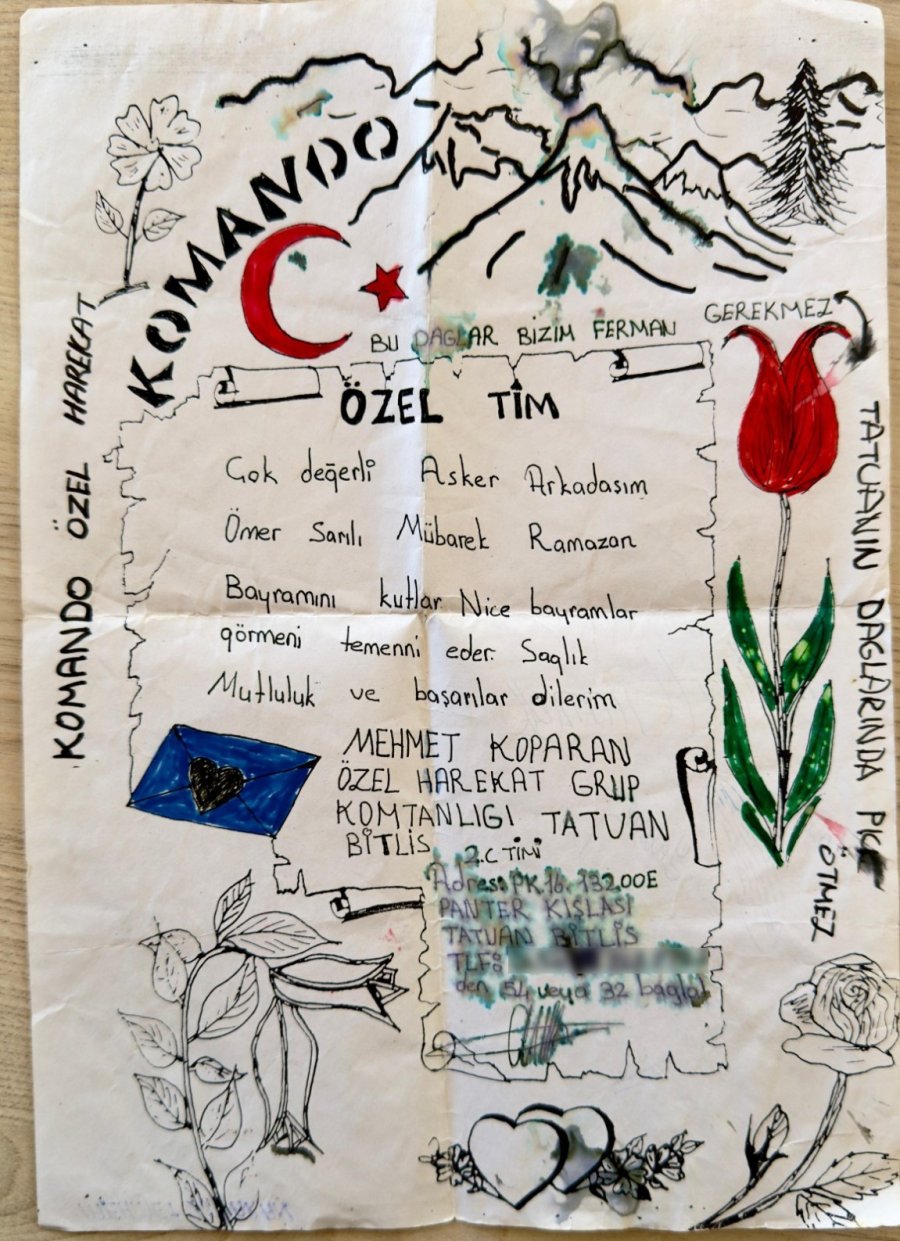 KOMANDO
BU DAGLAR BİZİM FERMAN GEREKMEZ
KOMANDO ÖZEL HAREKAT
ÖZEL TİM
Çok değerli Asker Arkadaşım
Ömer Sarılı Mübarek Ramazan
Bayramını kutlar Nice bayramlar
görmeni temenni eder. Saglık
Mutluluk ve başarılar dilerim
MEHMET KOPARAN
ÖZEL HAREKAT GRUP
KOMTANLIGI TATUAN
BİTLİS
2.C TİMİ
Adres: PK.16. 132.00E
PANTER KIŞLASI
TATUAN BİTLİS
TLF:
den 54 veya 32 bağlat
TATUANIN DAGLARINDA
ÖTMEZ